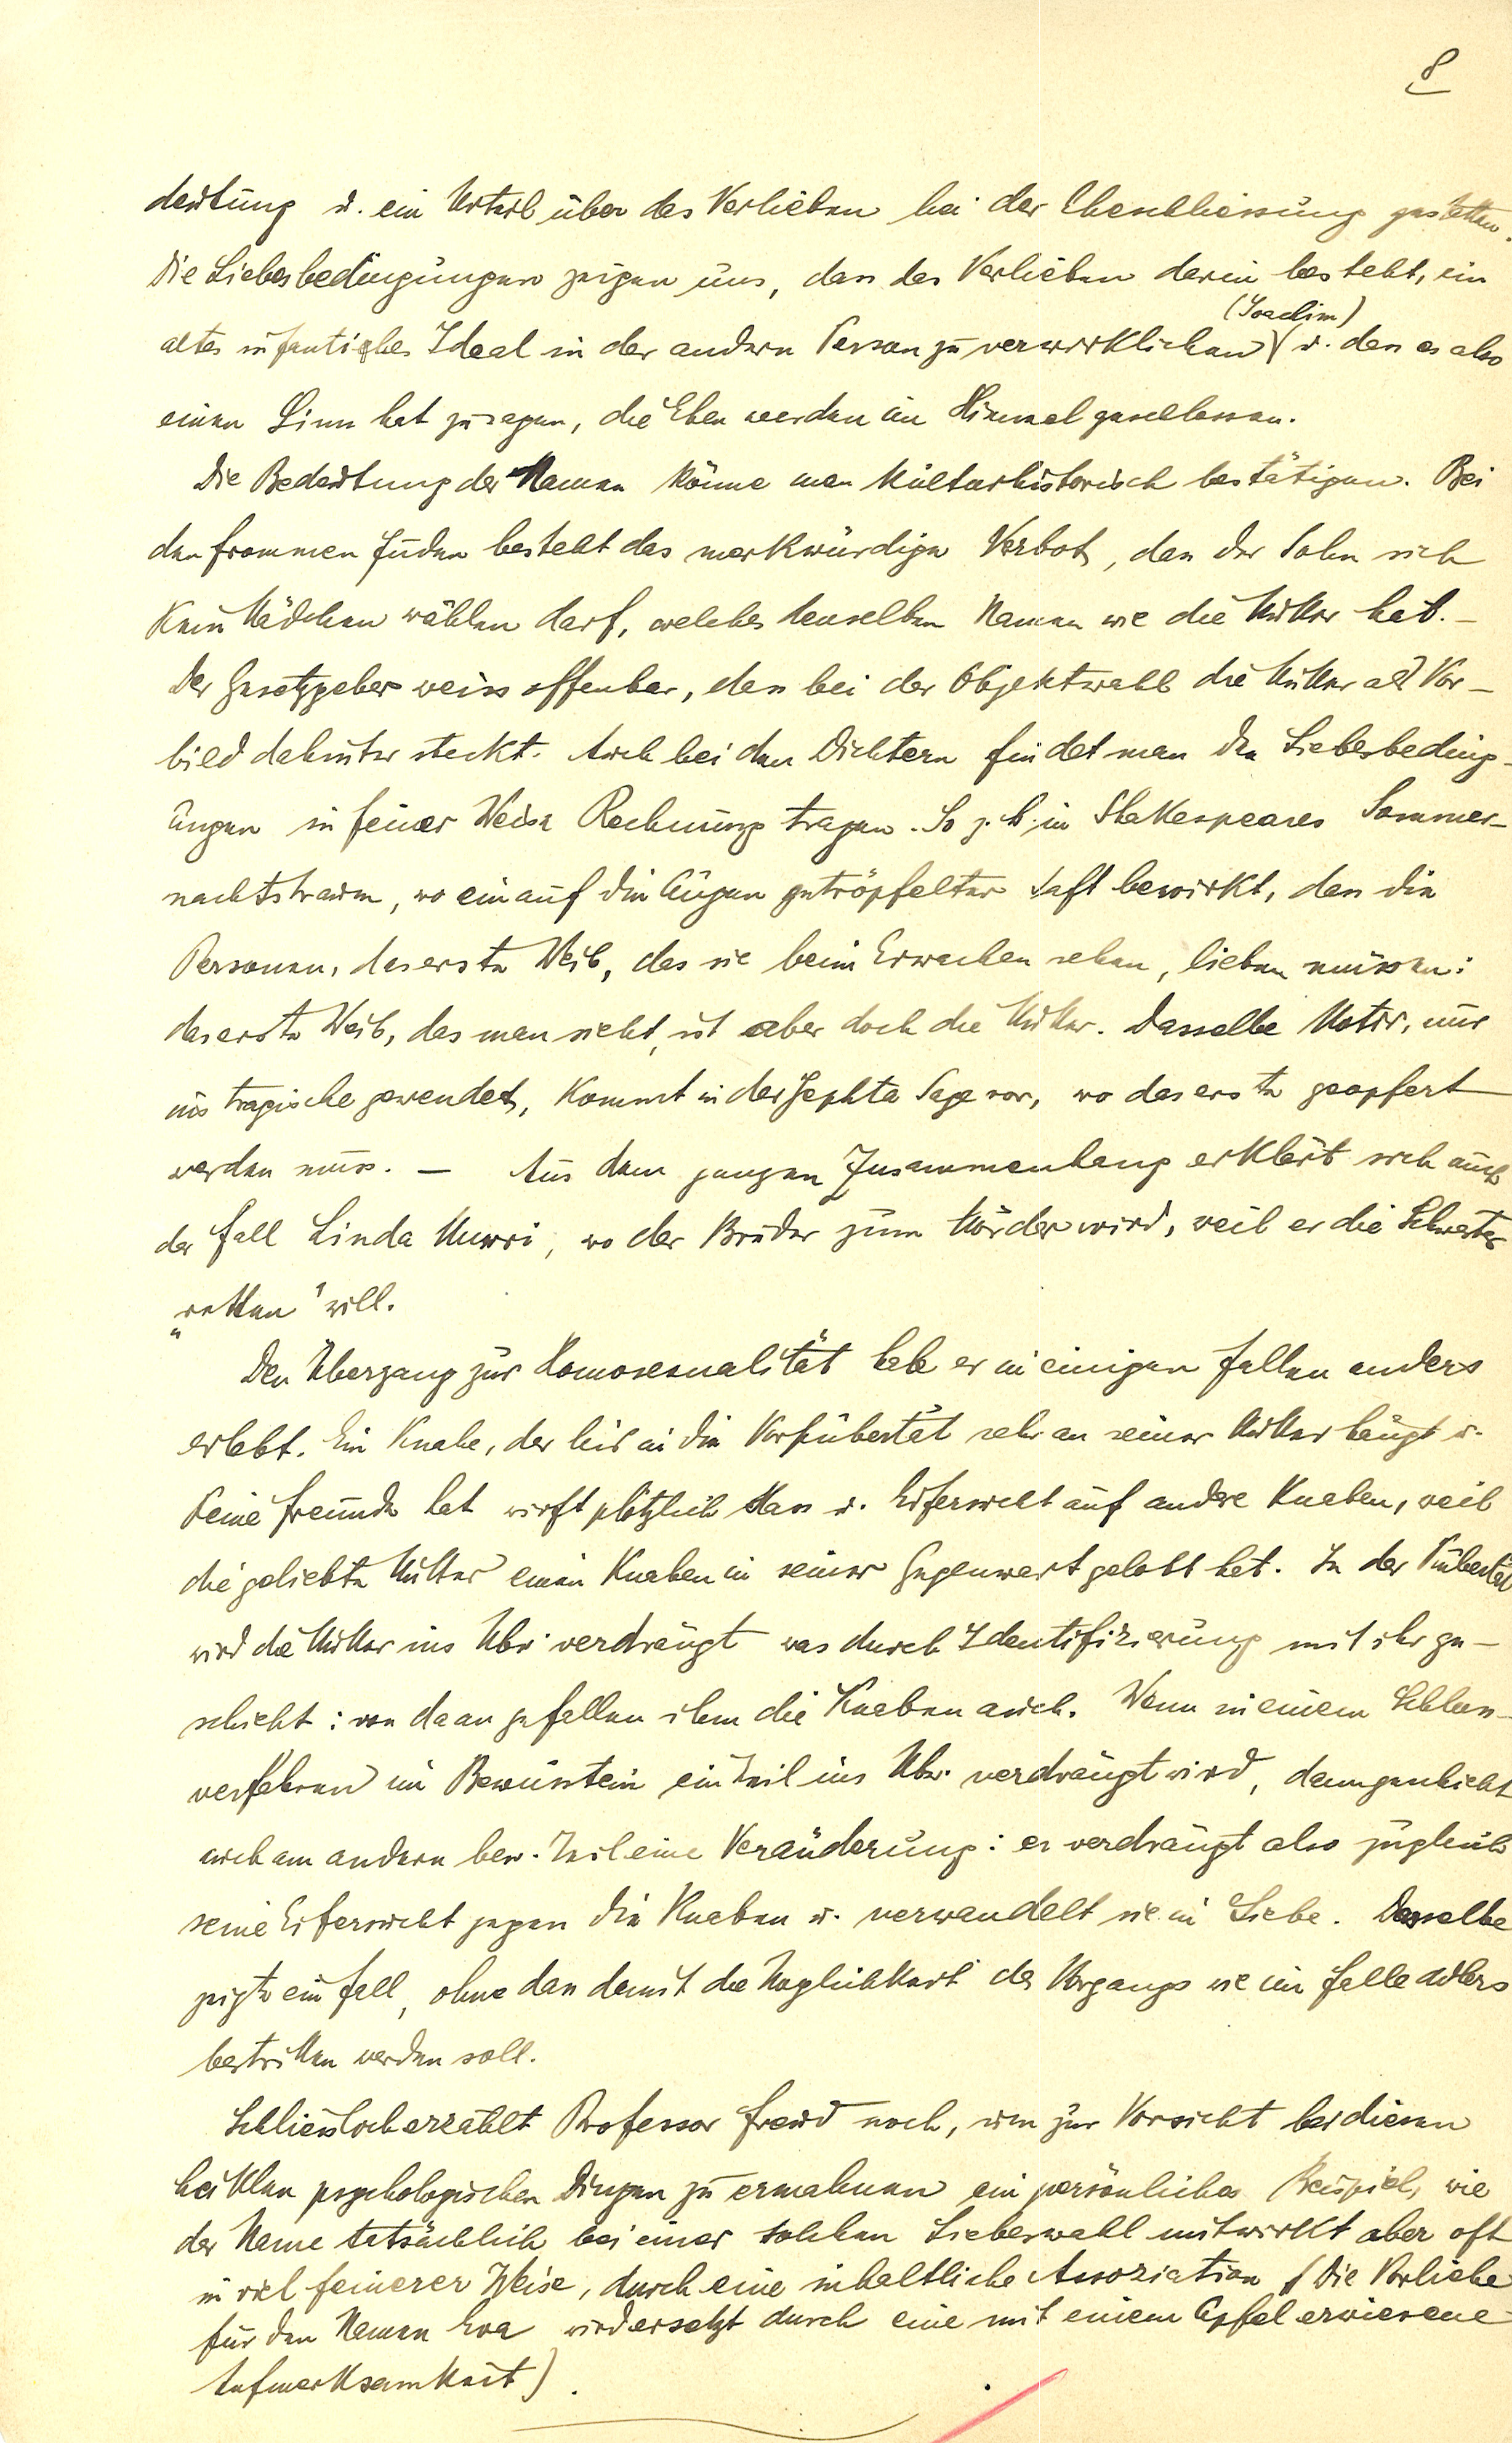 8
deutung u. ein Urteil über das Verlieben bei der Eheschliessung gestatten.
Die Liebesbedingungen zeigen uns, dass das Verlieben darin besteht, ein
(Joachim)
altes infantiles Ideal in der andern Person zu verwirklichen u. dass es also
einen Sinn hat zu sagen, die Ehen werden im Himmel geschlossen.
Die Bedeutung der Namen könne man kulturhistorisch bestätigen. Bei
den frommen Juden besteht das merkwürdige Verbot, dass der Sohn sich
kein Mädchen wählen darf, welches denselben Namen wie die Mutter hat. –
Der Gesetzgeber weiss offenbar, dass bei der Objektwahl die Mutter als Vor-
bild dahinter steckt. Auch bei den Dichtern findet man den Liebesbeding-
ungen in feiner Weise Rechnung tragen. So z. b. in Shakespeares Sommer-
nachtstraum, wo ein auf die Augen geträpfelter Saft bewirkt, dass die
Personen, das erste Weib, das sie beim Erwachen sehen, lieben müssen:
das erste Weib, das man sieht, ist aber doch die Mutter. Dasselbe Motiv, nur
ins tragische gewendet, kommt in der Jephta Sage vor, wo das erste geopfert
werden muss. – Aus dem ganzen Zusammenhang erklärt sich auch
der Fall Linda Murri, wo der Bruder zum Mörder wird, weil er die Schwester
„retten" will.
Den Übergang zur Homosexualität habe er in einigen Fällen anders
erlebt. Ein Knabe, der bis in die Vorpubertät sehr an seiner Mutter hängt u.
keine Freunde hat wirft plötzlich Hass u. Eifersucht auf andere Knaben, weil
die geliebte Mutter einen Knaben in seiner Gegenwart gelobt hat. In der Pubertät
wird die Mutter ins Ubw. verdrängt was durch Identifizierung mit ihr ge-
schieht: von da an gefallen ihm die Knaben auch. Wenn in einem
verfahren im Bewusstsein ein Teil ins Ubw. verdrängt wird, dann geschieht
auch am andern bew. Teil eine Veränderung: er verdrängt also zugleich
seine Eifersucht gegen die Knaben u. verwandelt sie in Liebe. Dasselbe
zeigte ein Fall, ohne dass damit die Möglichkeit des Vorgangs wie im Falle Adlers
bestritten werden soll.
Schliesslich erzählt Professor Freud noch, um zur Vorsicht bei diesen
heiklen psychologischen Dingen zu ermahnen ein persönliches Beispiel, wie
der Name tatsächlich bei einer solchen Liebeswahl mitwirkt aber oft
in viel feinerer Weise, durch eine inhaltliche Assoziation (Die Vorliebe
für den Namen Eva wird ersetzt durch eine mit einem Apfel erwiesene
Aufmerksamkeit).